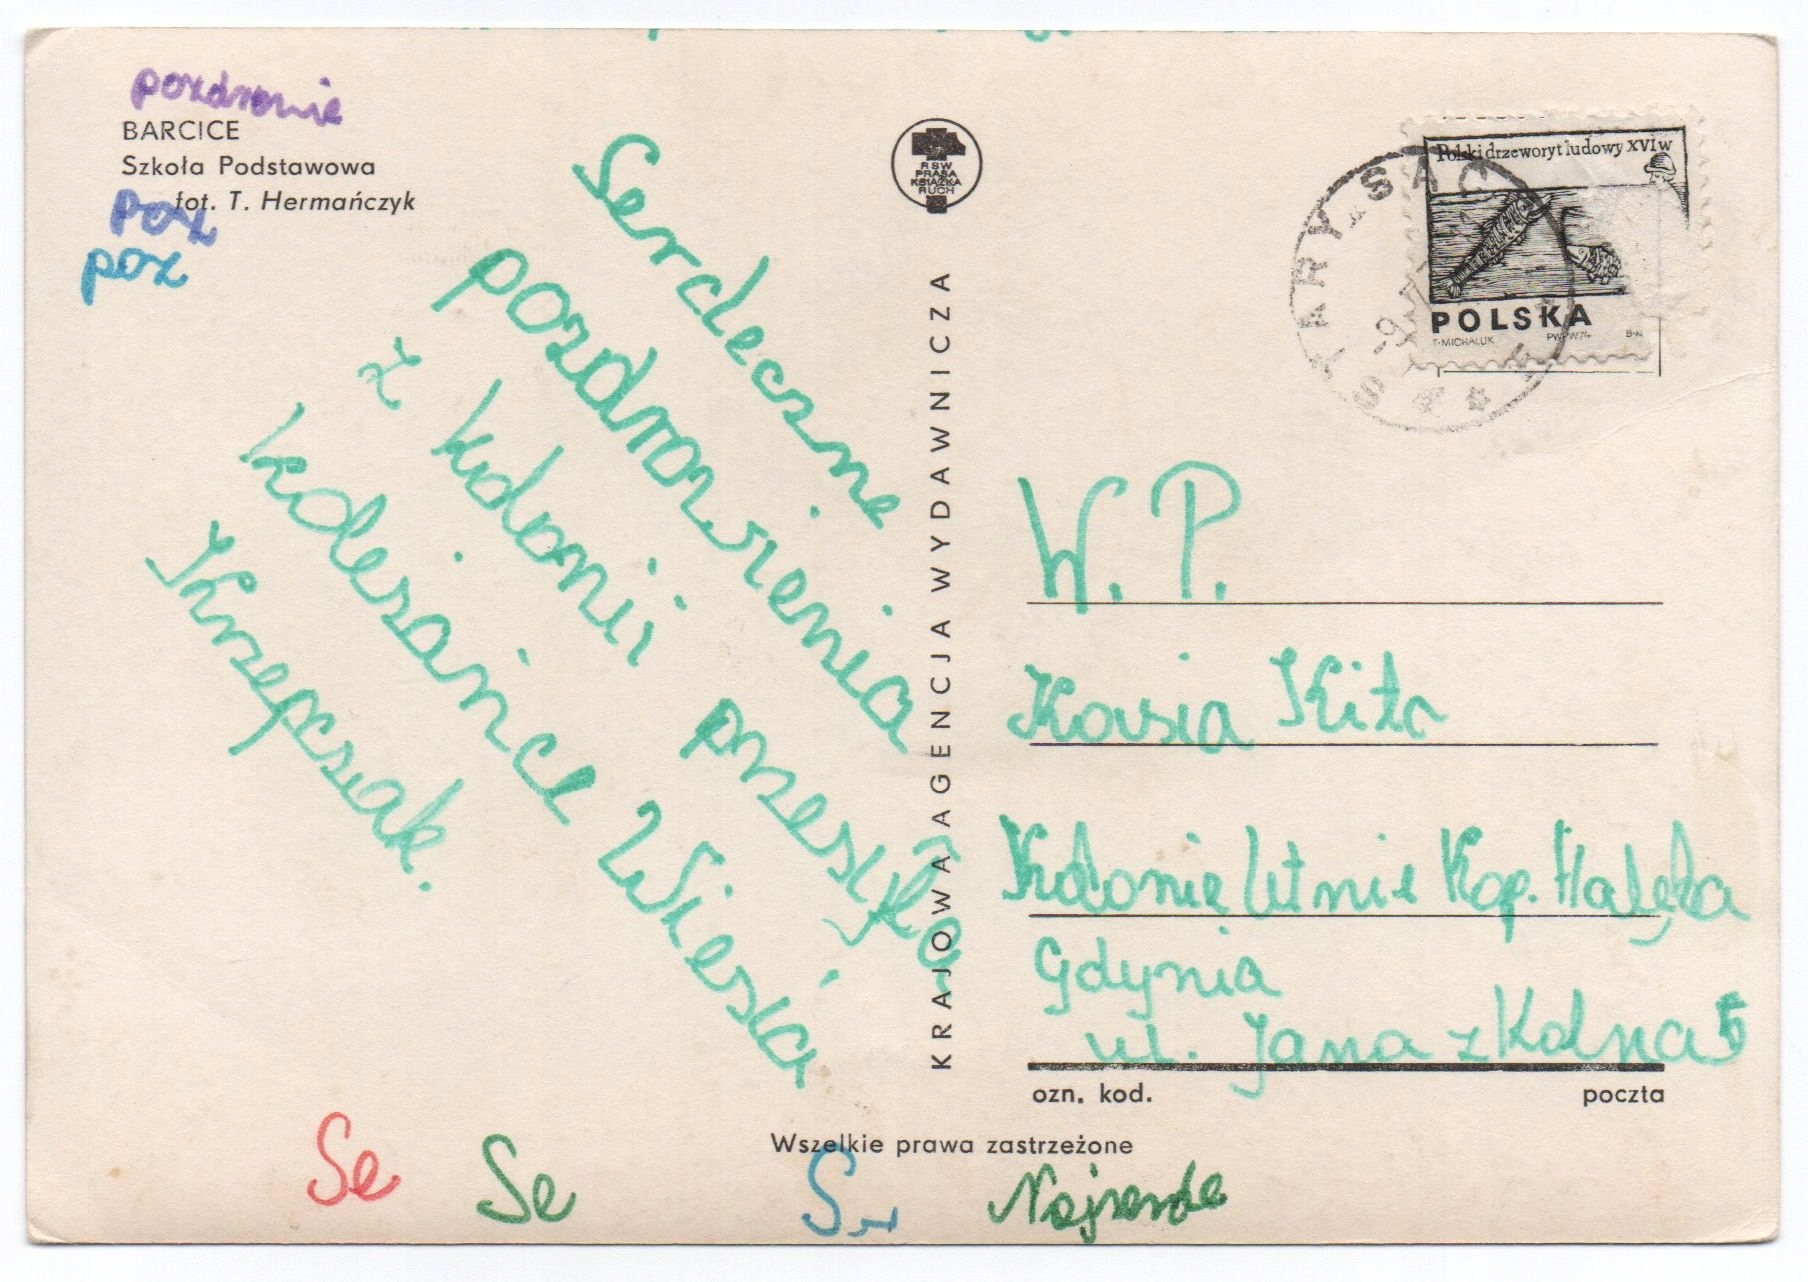 pozdronie
BARCICE
Szkoła Podstawowa
fot. T. Hermańczyk
poz
poz
Serdeczne
pozdrowienia
z kolonii przesyła
koleżance Wiesia
Krzepczak.
RSW
PRASA
KSIĄŻKA
RUCH
KRAJOWA AGENCJA WYDAWNICZA
Polski drzeworyt ludowy XVI w
POLSKA
T. MICHALUK PWPW 74
STARY SĄC
-9
W. P.
Kasia Kita
Kolonie letnie Kop. Halęba
Gdynia
ul. Jana z Kolna 5
ozn. kod. poczta
Wszelkie prawa zastrzeżone
Se Se Se Najserde